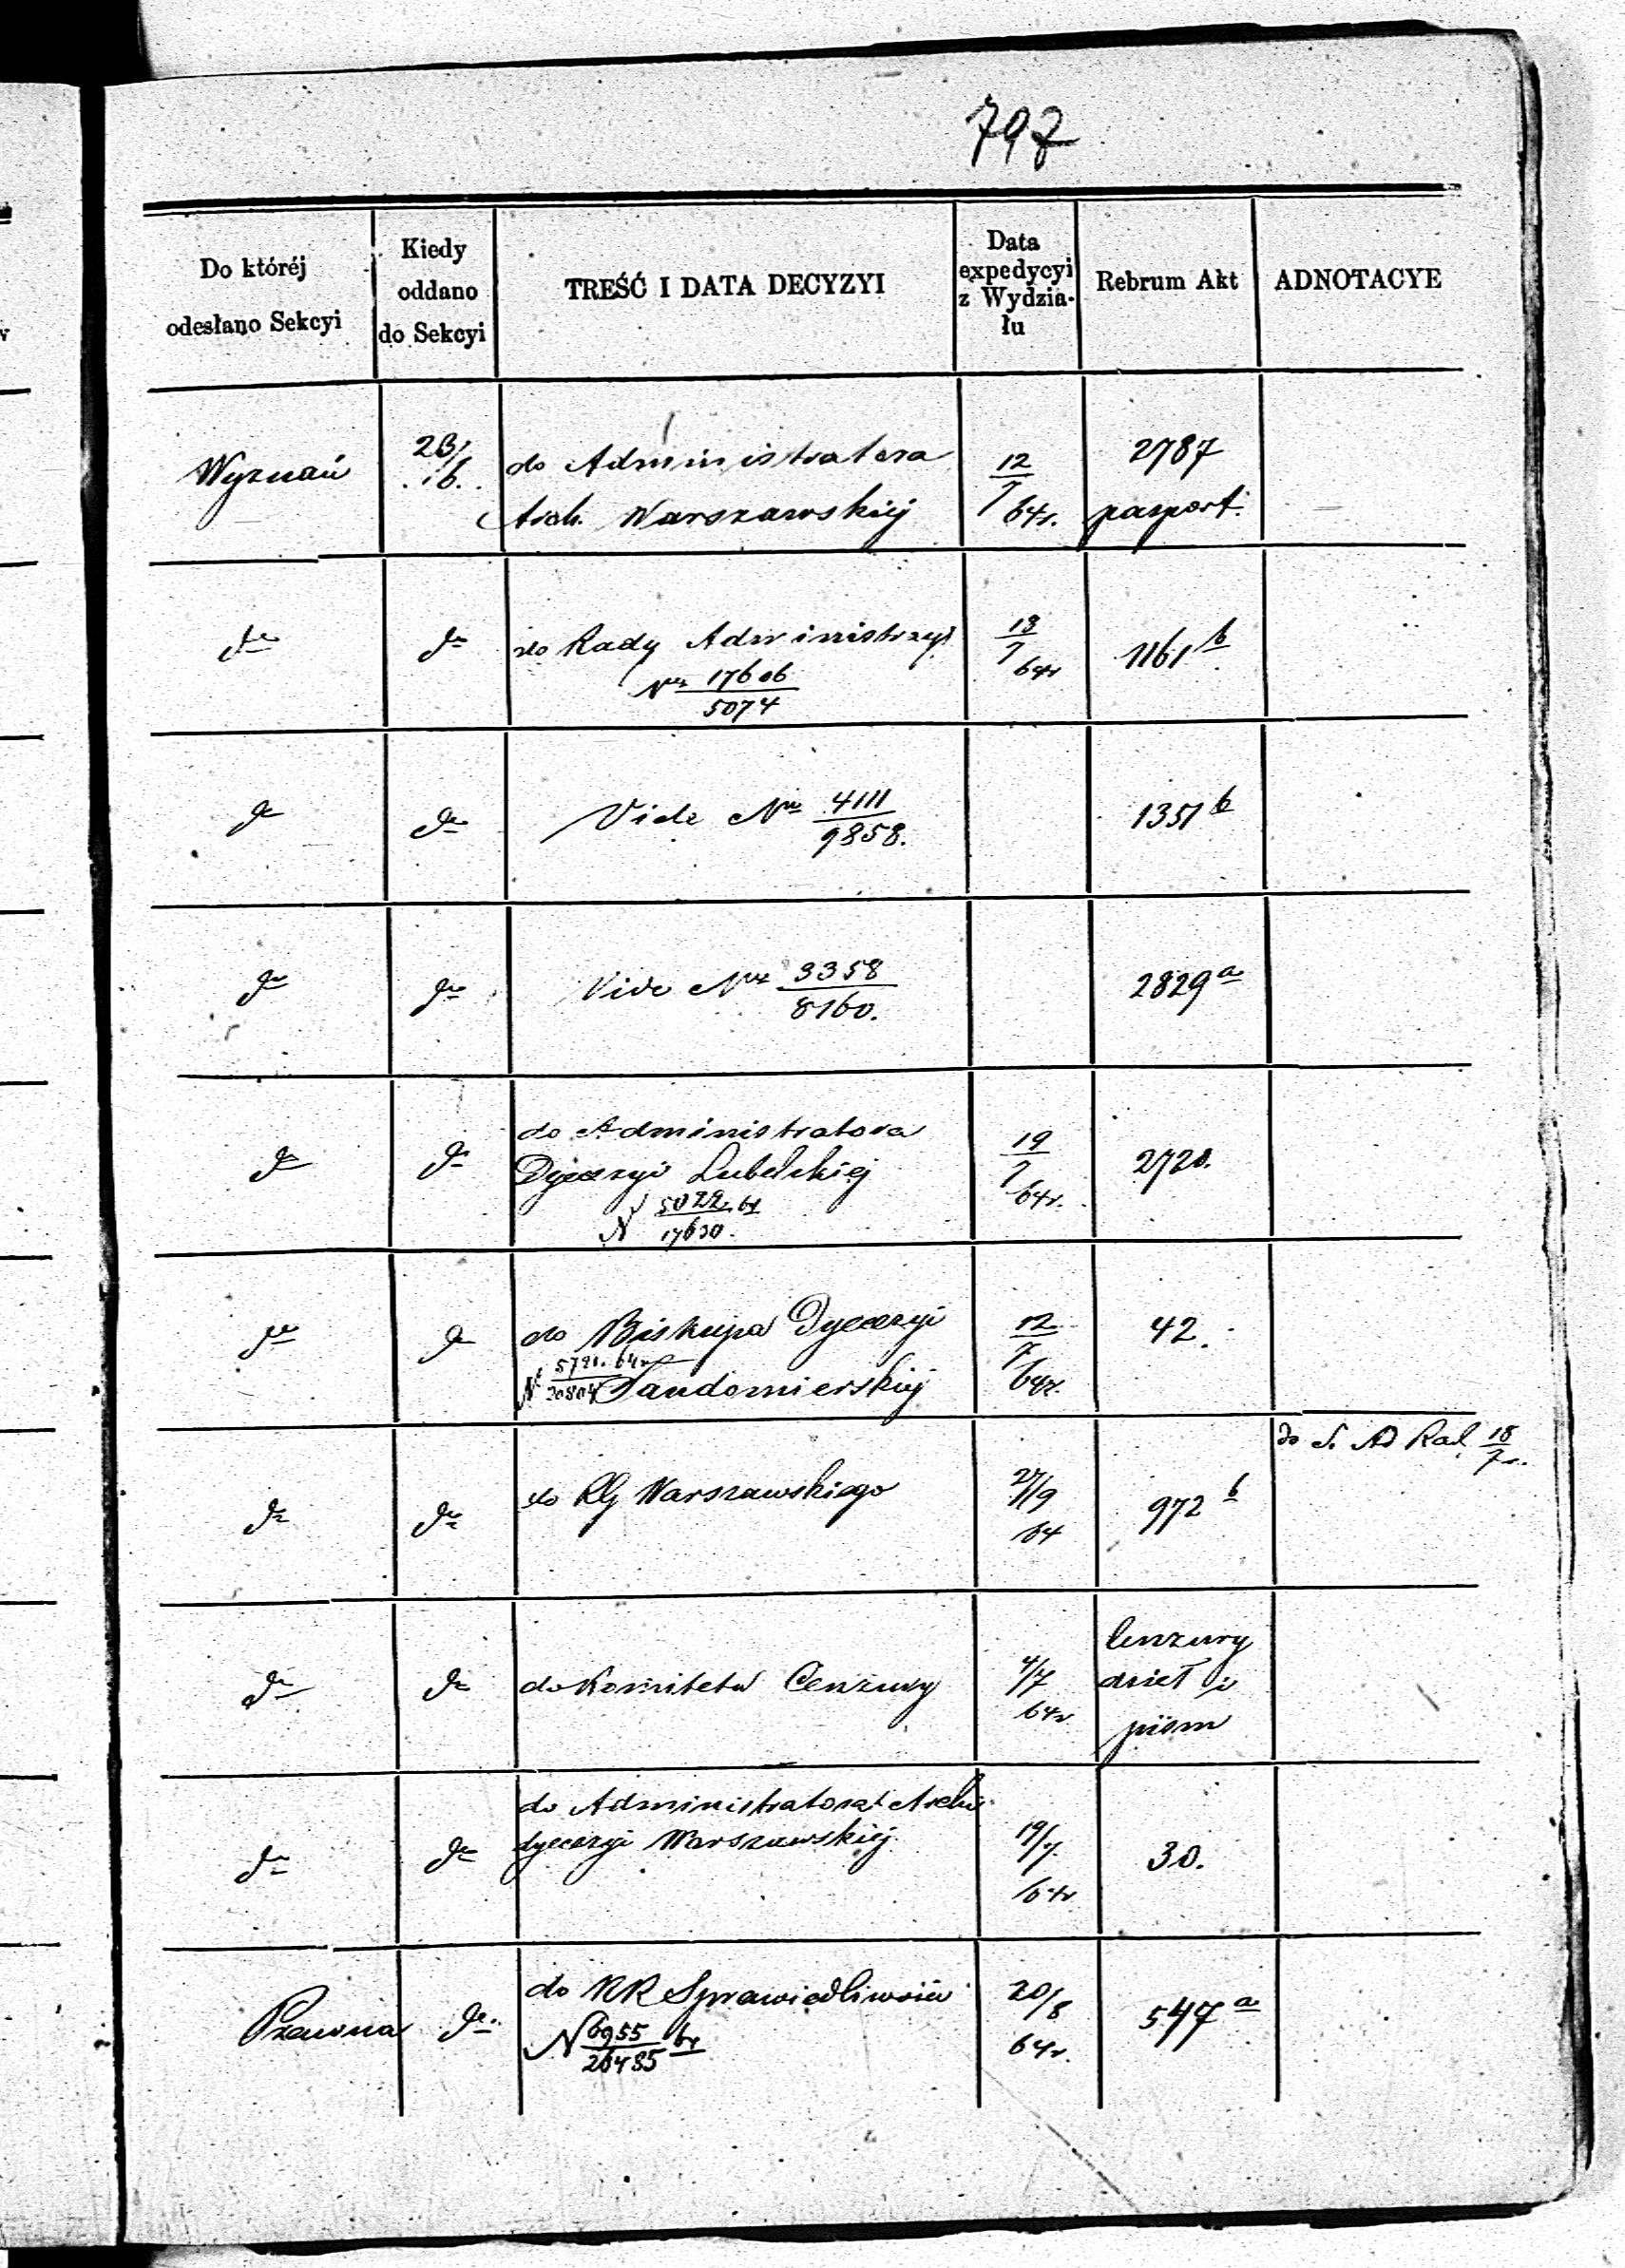 797
Do któréj
odesłano Sekcyi
Kiedy
oddano
do Sekcyi
TREŚĆ I DATA DECYZYI
Data
expedycyi
z Wydzia-
łu
Rebrum Akt
ADNOTACYE
Wyznań
23/
6.
do Administratora
Arch. Warszawskiéj
12
7
64r.
2787
pasport.
do
do
do Rady Administrzyi
Nr 17606
5074
13
7
64r
1161 b
do
do
Vide Nr 4111
9858.
1351 b
do
do
Vide Nr 3358
8160.
2829 a
do
do
do Administratora
Dyecezyi Lubelskiéj
N 5022. 64
17630.
19
7
64r.
2720.
do
do
do Biskupa Dyecezyi
Sandomierskiéj
12
7
64r.
42.
do S. Ad Rad. 18
7
do
do
do RG Warszawskiego
27/9
64
972 b
do
do
do Komitetu Cenzury
4/7
64r
Cenzury
dzieł i
pism
do
do
do Administratora Archi
dyecezyi Warszawskiéj
19/7.
64r
30.
Prawna
do.
do KR Sprawiedliwości
N 6955 64
26485
20/8
64r.
547 a